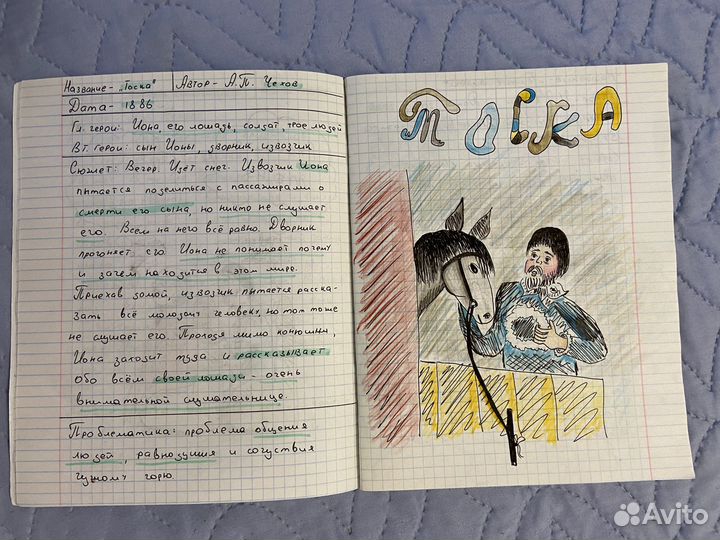 Название - „Тоска" Автор - А.П. Чехов
Дата - 1886
Гл. герои: Иона, его лошадь, солдат, трое людей
Вт. герои: сын Ионы, дворник, извозчик
Сюжет: Вечер. Идёт снег. Извозчик Иона
пытается поделиться с пассажирами о
смерти его сына, но никто не слушает
его. Всем на него всё равно. Дворник
прогоняет его. Иона не понимает почему
и зачем находится в этом мире.
Приехав домой, извозчик пытается расска-
зать всё молодому человеку, но тот тоже
не слушает его. Проходя мимо конюшни,
Иона заходит туда и рассказывает
обо всём своей лошади - очень
внимательной слушательнице.
Проблематика: проблема общения
людей, равнодушия и сочуствия
чужому горю.
ТОСКА
Avito